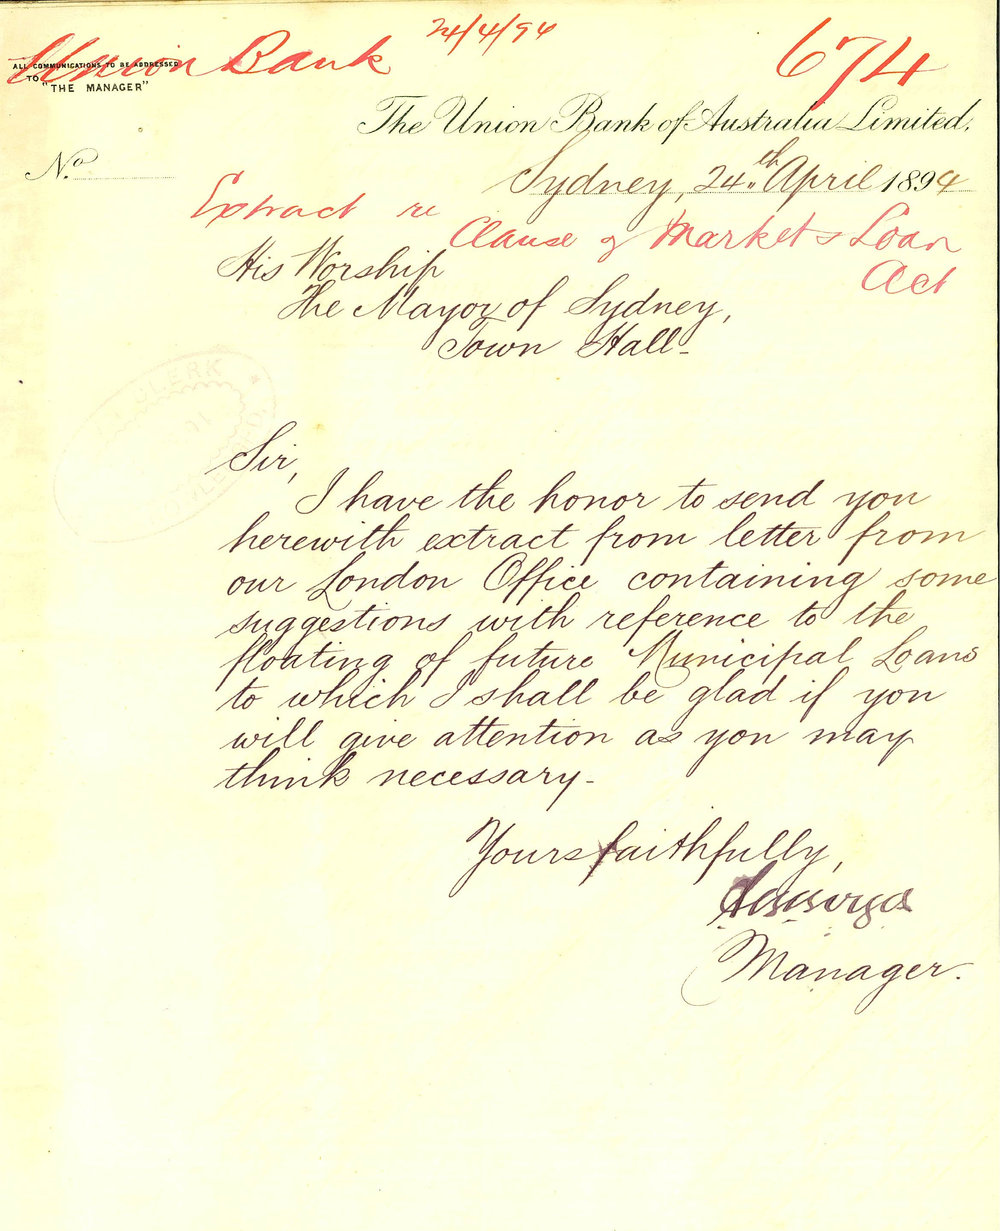 Union Bank
24/4/94
674
ALL COMMUNICATIONS TO BE ADDRESSED
TO "THE MANAGER"
The Union Bank of Australia Limited.
No.
Sydney, 24th April 1894
Extract re Clause of Markets Loan
Act
His Worship
The Mayor of Sydney,
Town Hall-
CLERK
Sir,
I have the honor to send you
herewith extract from letter from
our London Office containing some
suggestions with reference to the
floating of future Municipal Loans
to which I shall be glad if you
will give attention as you may
think necessary-
Yours faithfully,
Manager.